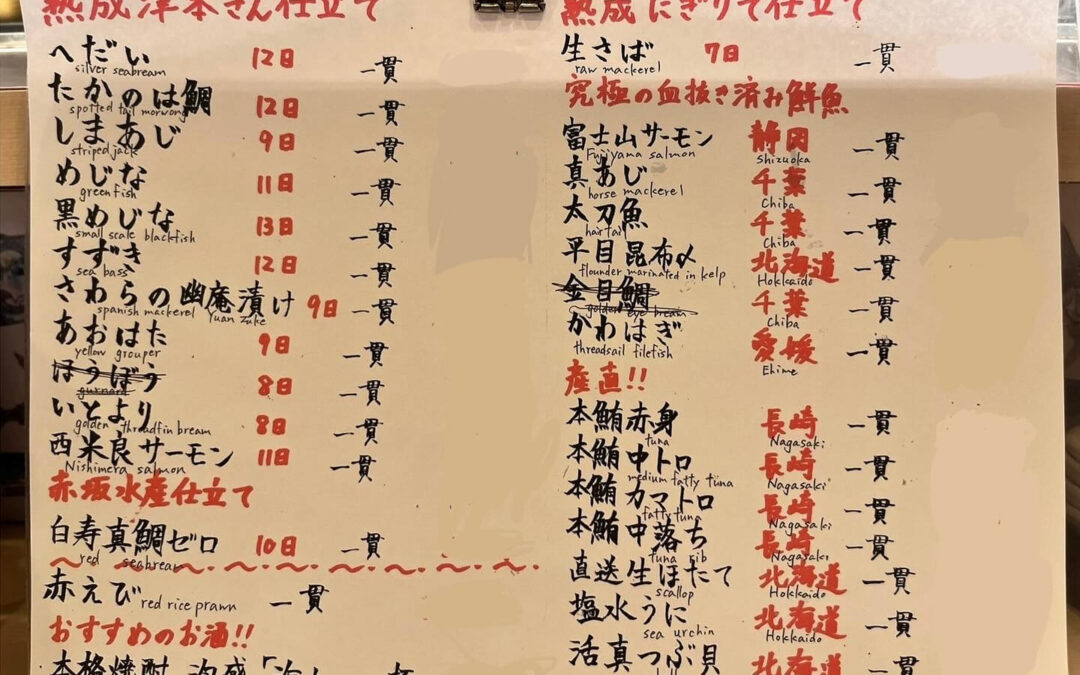 熟成津本さん仕立て
へだい 12日 一貫
silver seabream
たかのは鯛 12日 一貫
spotted tail morwong
しまあじ 9日 一貫
striped jack
めじな 11日 一貫
green fish
黒めじな 13日 一貫
small scale blackfish
すずき 12日 一貫
sea bass
さわらの幽庵漬け 9日 一貫
spanish mackerel Yuan Zuke
あおはた 9日 一貫
yellow grouper
ほうぼう 8日 一貫
gurnard
いとより 8日 一貫
golden threadfin bream
西米良サーモン 11日 一貫
Nishimera salmon
赤坂水産仕立て
白寿真鯛ゼロ 10日 一貫
red seabream
赤えび red rice prawn 一貫
おすすめのお酒!!
本格焼酎 泡盛
熟成にぎりて仕立て
生さば 7日 一貫
raw mackerel
究極の血抜き済み鮮魚
富士山サーモン 静岡 一貫
Fujiyama salmon Shizuoka
真あじ 千葉 一貫
horse mackerel Chiba
太刀魚 千葉 一貫
hair tail Chiba
平目昆布〆 北海道 一貫
flounder marinated in kelp Hokkaido
金目鯛 千葉 一貫
golden eye bream Chiba
かわはぎ 愛媛 一貫
threadsail filefish Ehime
産直!!
本鮪赤身 長崎 一貫
tuna Nagasaki
本鮪中トロ 長崎 一貫
medium fatty tuna Nagasaki
本鮪カマトロ 長崎 一貫
fatty tuna Nagasaki
本鮪中落ち 長崎 一貫
tuna rib Nagasaki
直送生ほたて 北海道 一貫
scallop Hokkaido
塩水うに 北海道 一貫
sea urchin Hokkaido
活真つぶ貝 北海道 一貫